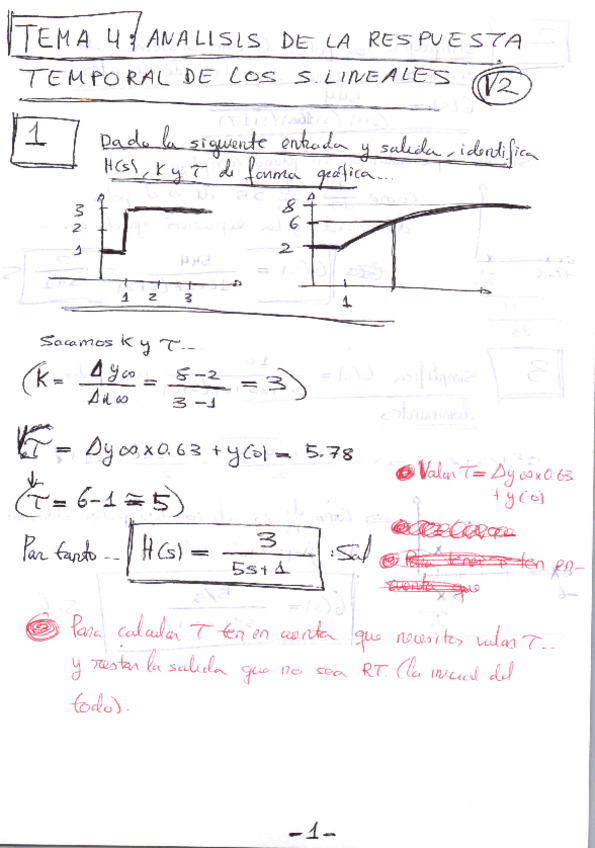 TEMA 4: ANALISIS DE LA RESPUESTA
TEMPORAL DE LOS S.LINEALES V2
1
Dada la siguiente entrada y salida, identifica
H(s), K y τ de forma gráfica...
3
2
1
1 2 3
8
6
2
1
Sacamos K y τ...
(K = Δy∞ / Δu∞ = 8-2 / 3-1 = 3)
τ = Δy∞ x 0.63 + y(0) = 5.78
(τ = 6-1 ≅ 5)
Valor τ = Δy∞ x 0.63
+ y(0)
Por tanto... H(s) = 3 / 5s+1 : Sal
Para calcular τ ten en cuenta que necesitas valor τ...
y restar la salida que no sea RT. (la inicial del
todo).
-1-